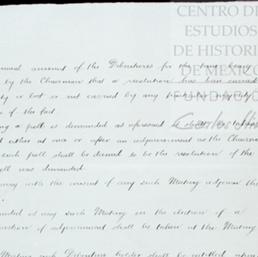 CENTRO DE
ESTUDIOS
DE HISTORIA
DE MEXICO
FUNDACIÓN
Carlos Slim
amount of the Debentures for the time being
by the Chairman that a resolution has been carried
or lost or not carried by any particular majority
of the fact.
a poll is demanded as aforesaid it shall be taken
either at once or after an adjournment as the Chairman
such poll shall be deemed to be the resolution of the
poll was demanded.
may with the consent of any such Meeting adjourn the
at any such Meeting on the election of a
question of adjournment shall be taken at the Meeting
Meeting each Debenture holder shall be entitled upon